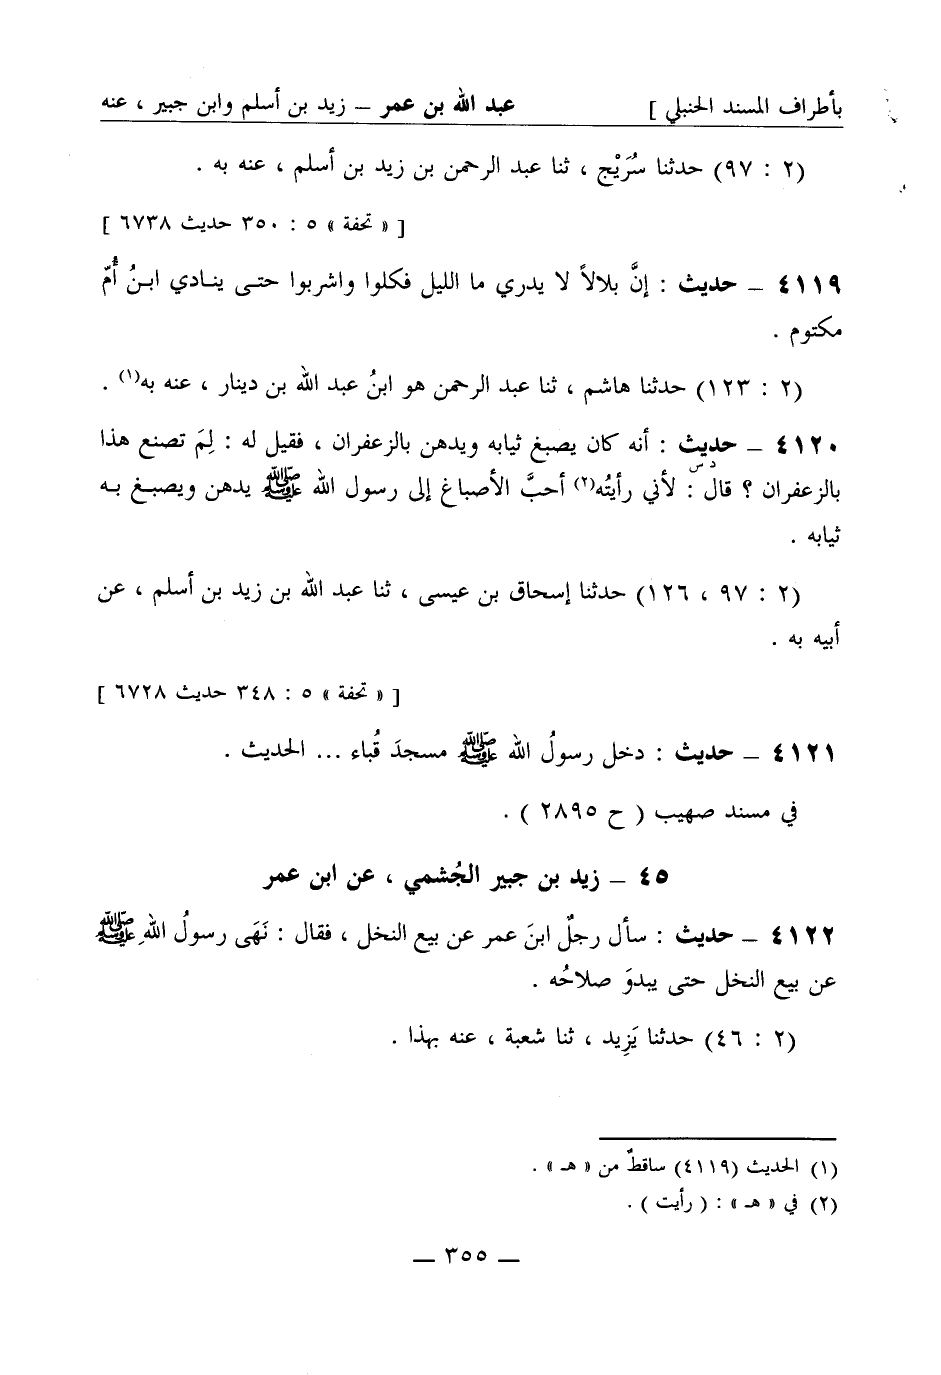 بأطراف المسند الحنبلي ] عبد الله بن عمر – زيد بن أسلم وابن جبير ، عنه
(٢ : ٩٧) حدثنا سُرَيْج ، ثنا عبد الرحمن بن زيد بن أسلم ، عنه به .
[ « تحفة » ٥ : ٣٥٠ حديث ٦٧٣٨ ]
٤١١٩ – حديث : إنَّ بلالاً لا يدري ما الليل فكلوا واشربوا حتى ينادي ابنُ أُمّ
مكتوم .
(٢ : ١٢٣) حدثنا هاشم ، ثنا عبد الرحمن هو ابنُ عبد الله بن دينار ، عنه به(١) .
٤١٢٠ – حديث : أنه كان يصبغ ثيابه ويدهن بالزعفران ، فقيل له : لِمَ تصنع هذا
د س
بالزعفران ؟ قال : لأني رأيتُه(٢) أحبَّ الأصباغ إلى رسول الله ﷺ يدهن ويصبغ به
ثيابه .
(٢ : ٩٧ ، ١٢٦) حدثنا إسحاق بن عيسى ، ثنا عبد الله بن زيد بن أسلم ، عن
أبيه به .
[ « تحفة » ٥ : ٣٤٨ حديث ٦٧٢٨ ]
٤١٢١ – حديث : دخل رسولُ الله ﷺ مسجدَ قُباء ... الحديث .
في مسند صهيب ( ح ٢٨٩٥ ) .
٤٥ – زيد بن جبير الجُشمي ، عن ابن عمر
٤١٢٢ – حديث : سأل رجلٌ ابنَ عمر عن بيع النخل ، فقال : نَهَى رسولُ اللهِ ﷺ
عن بيع النخل حتى يبدوَ صلاحُه .
(٢ : ٤٦) حدثنا يَزِيد ، ثنا شعبة ، عنه بهذا .
(١) الحديث (٤١١٩) ساقطٌ من « هـ » .
(٢) في « هـ » : ( رأيت ) .
– ٣٥٥ –